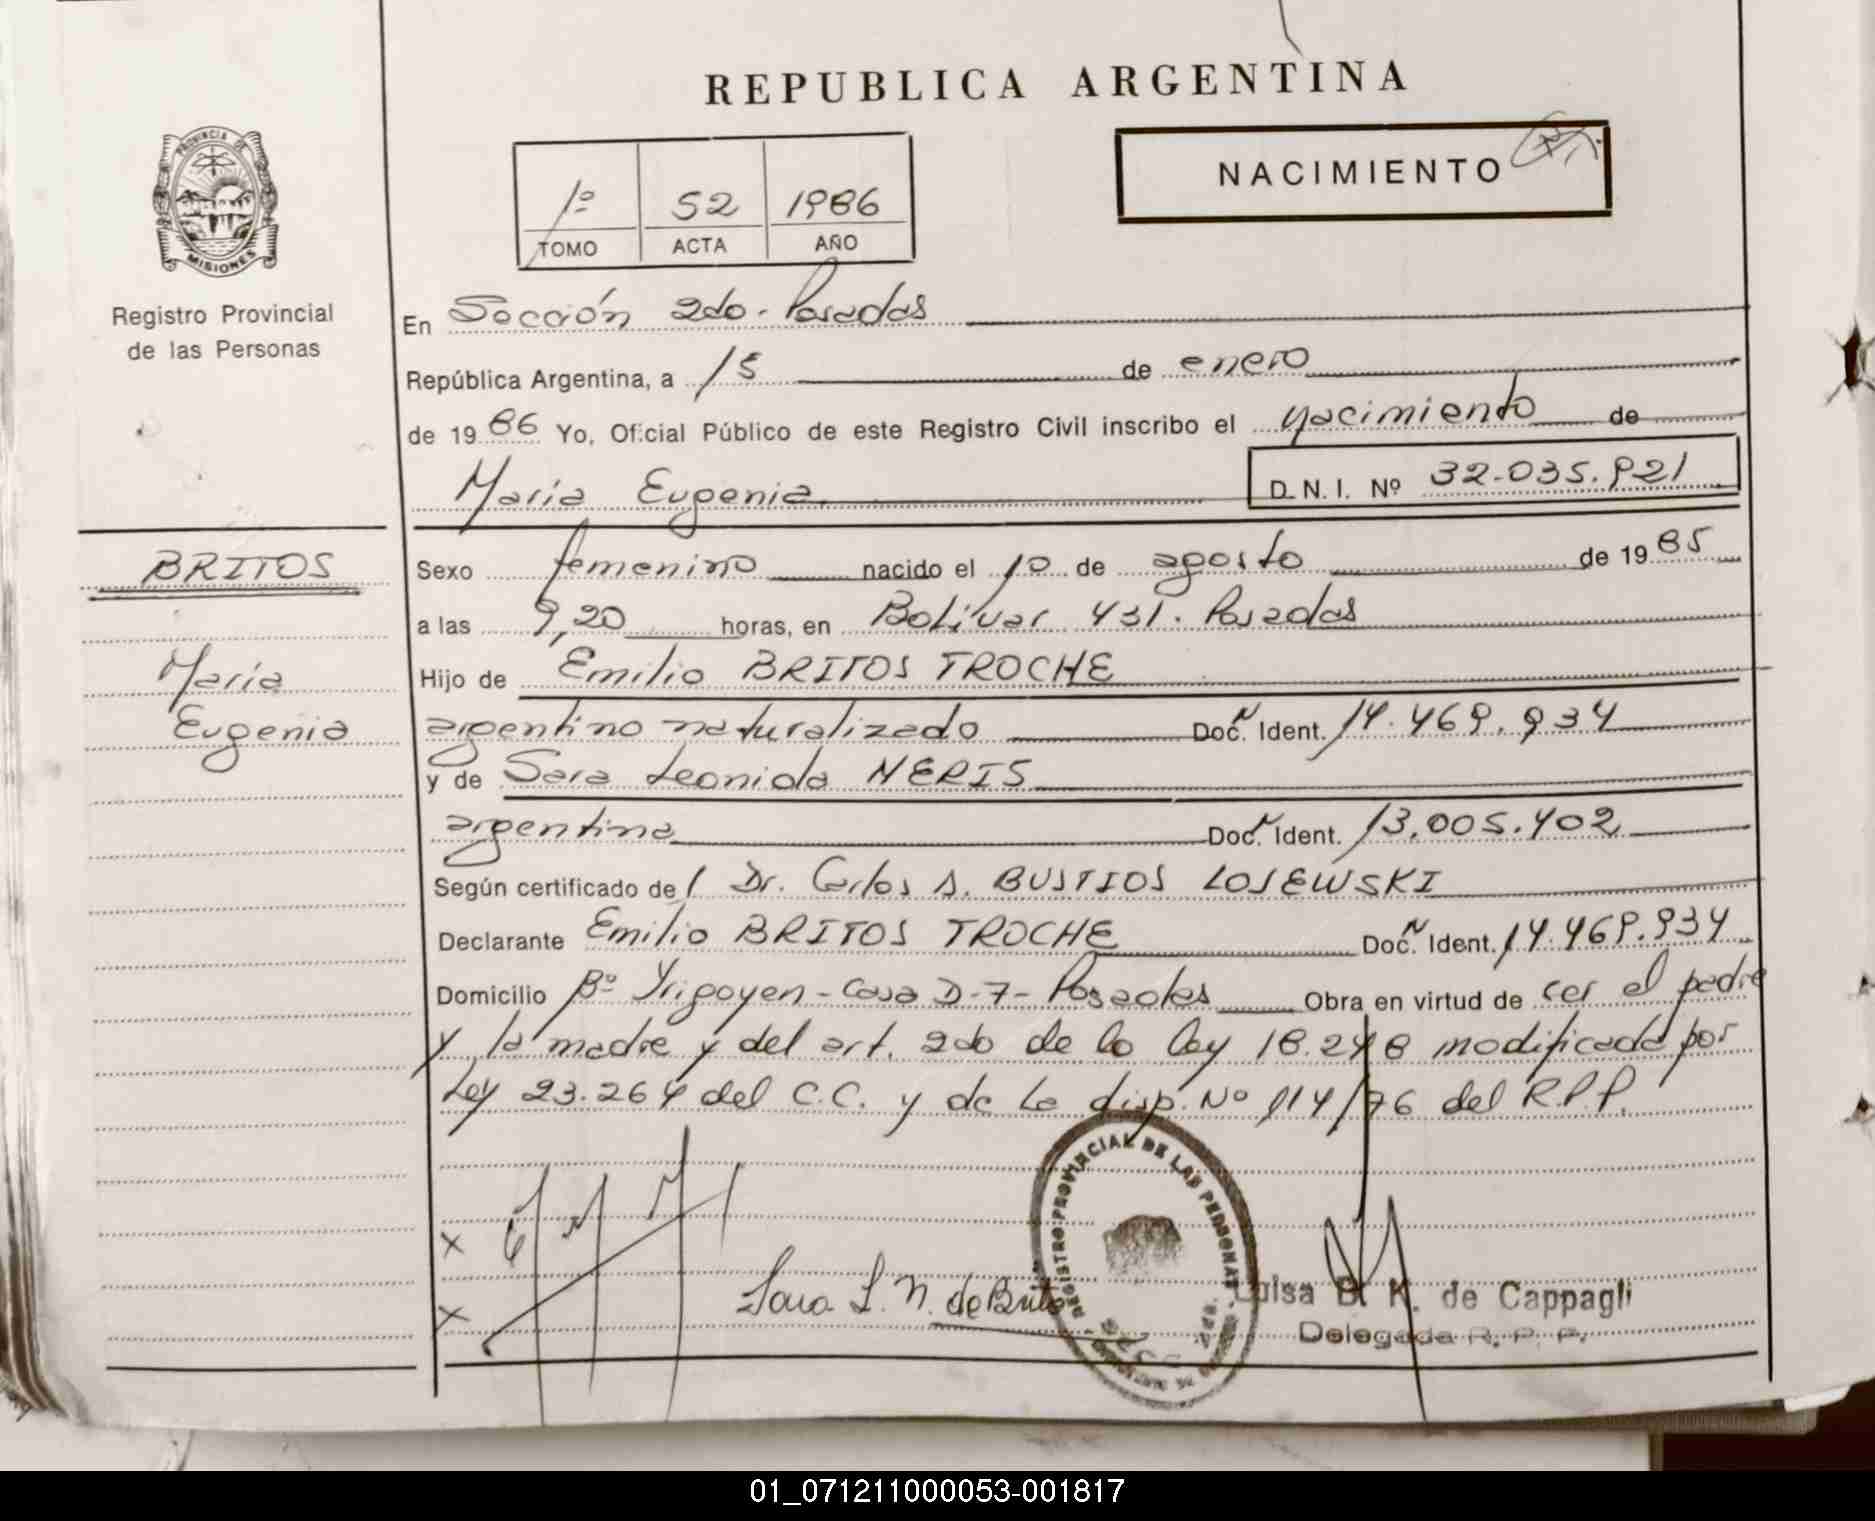 REPUBLICA ARGENTINA
PROVINCIA DE MISIONES
Registro Provincial
de las Personas
1º 52 1986
TOMO ACTA AÑO
NACIMIENTO
En Sección 2do. Posadas
República Argentina, a 15 de enero
de 1986 Yo, Oficial Público de este Registro Civil inscribo el nacimiento de
María Eugenia D.N.I. Nº 32.035.921
BRITOS
María
Eugenia
Sexo femenino nacido el 10 de agosto de 1985
a las 9,20 horas, en Bolívar 431. Posadas
Hijo de Emilio BRITOS TROCHE
argentino naturalizado Doc. Ident. 14.469.934
y de Sara Leonida NERIS
argentina Doc. Ident. 13.005.402
Según certificado de Dr. Carlos A. BUSTIOS LOSEWSKI
Declarante Emilio BRITOS TROCHE Doc. Ident. 14.469.934
Domicilio Bº Yrigoyen - Casa D-7 - Posadas Obra en virtud de ser el padre
y la madre y del art. 2do de la ley 18.248 modificada por
Ley 23.264 del C.C. y de la disp. Nº 114/76 del R.P.P.
x
x
Sara L. N. de Britos
REGISTRO PROVINCIAL DE LAS PERSONAS
Luisa B. K. de Cappagli
Delegada R. P. P.
01_071211000053-001817